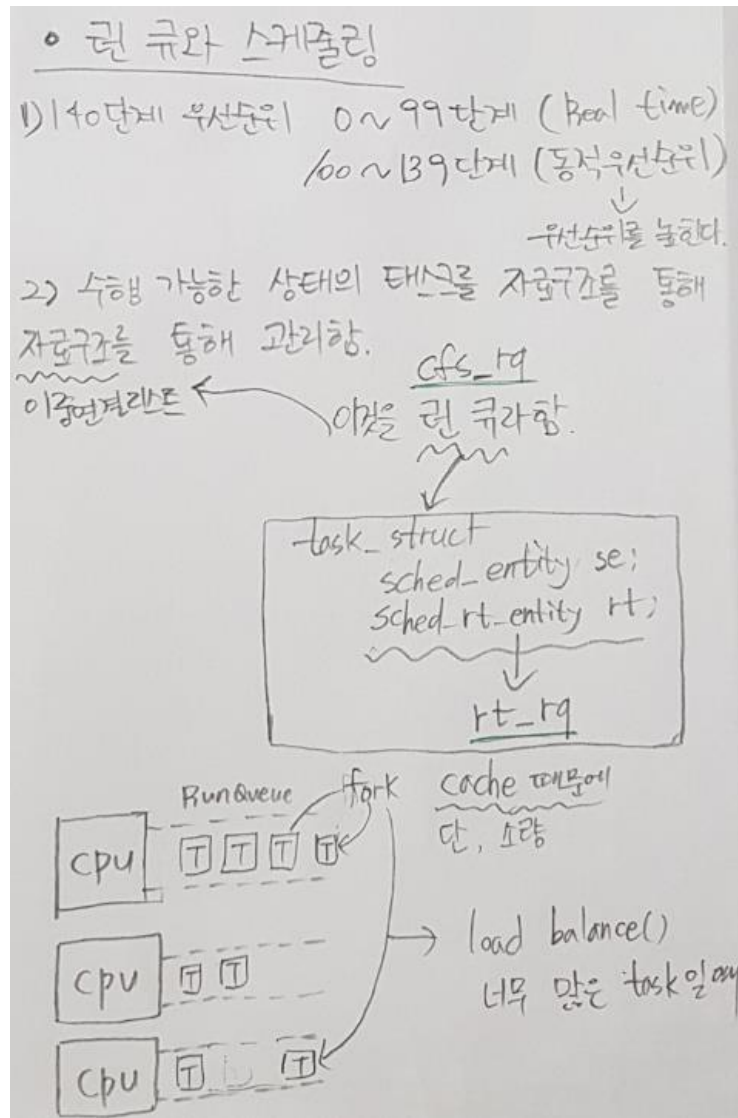 • 런 큐와 스케줄링
1) 140단계 우선순위 0~99단계 (Real time)
100~139단계 (동적우선순위)
우선순위를 높힌다.
2) 수행 가능한 상태의 태스크를 자료구조를 통해
자료구조를 통해 관리함.
cfs_rq
이중연결리스트
이것을 런 큐라함.
task_struct
sched_entity se;
sched_rt_entity rt;
rt_rq
RunQueue fork cache 때문에
단, 소량
cpu T T T T
load balance()
cpu T T
너무 많은 task일 때
cpu T T